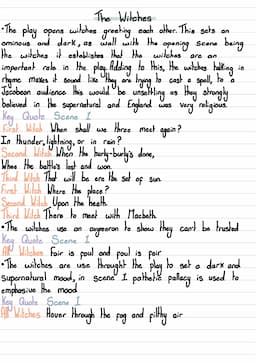 The Witches
•The play opens witches greeting each other. This sets an
ominous and dark, as well with the opening scene being
the witches it establishes that the witches are an
important role in the play. Adding to this, the witches talking in
rhyme makes it sound like they are trying to cast a spell, to a
Jacobean audience this would be unsettling as they strongly
believed in the supernatural and England was very religious.
Key Quote Scene I
First Witch When shall we three meet again?
In thunder, lightning, or in rain?
Second Witch When the hurly-burly's done,
When the battle's lost and won.
Third Witch That will be ere the set of sun.
First Witch Where the place?
Second Witch Upon the heath
Third Witch There to meet with Macbeth
•The witches use an oxymoron to show they can't be trusted
Key Quote Scene I
All Witches Fair is foul and foul is fair
•The witches are use throught the play to set a dark and
supernatural mood, in scene I pathetic fallacy is used to
emphasise the mood
Key Quote Scene I
All Witches Hover through the fog and filthy air